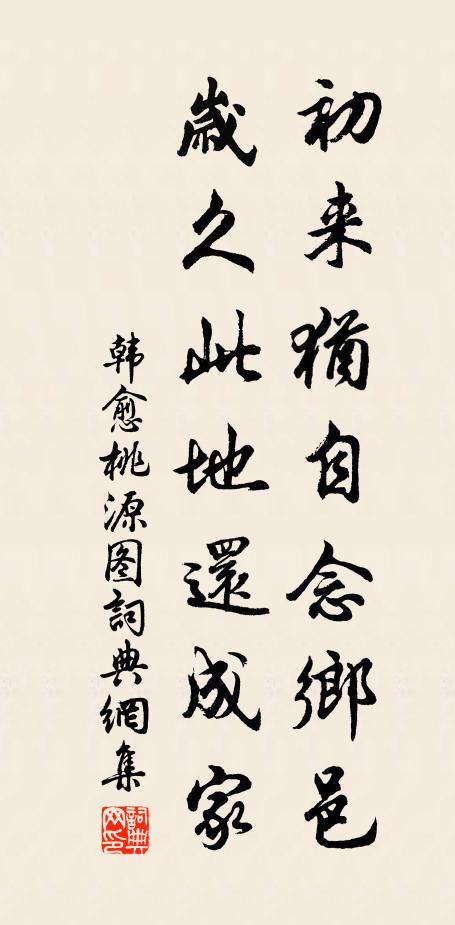 初来猶自念鄉邑
歲久此地還成家
韩愈桃源图詞典網集
詞典网印